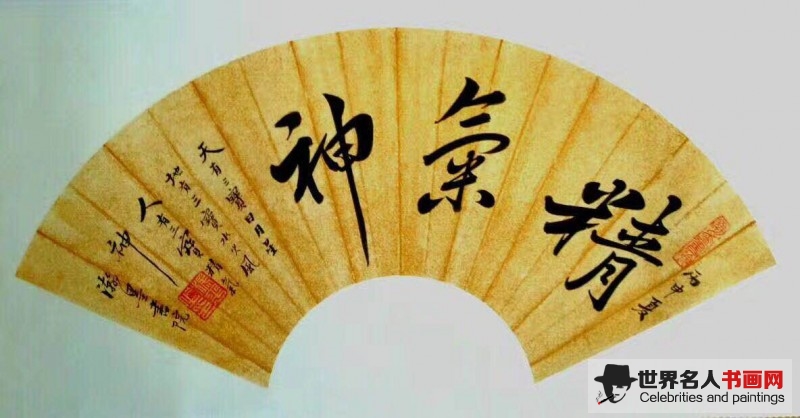 丙申夏
精氣神
天有三寶日月星
地有三寶水火風
人有三寶精氣
神
墨書院
世界名人书画网
Celebrities and paintings